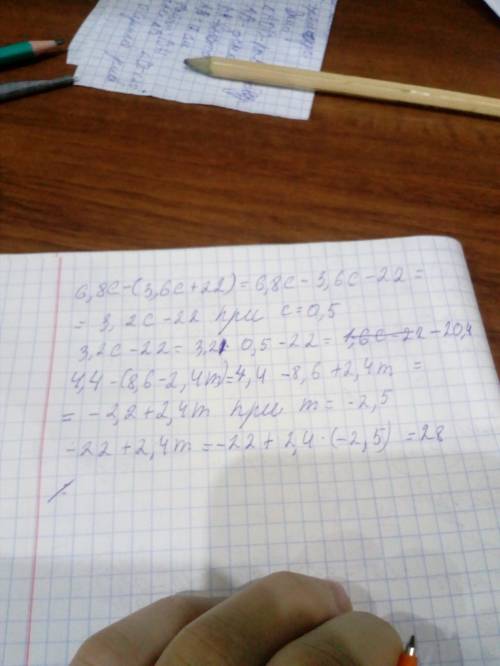 6,8c-(3,6c+22)=6,8c-3,6c-22=
= 3,2c-22 при c=0,5
3,2c-22= 3,2· 0,5-22= 1,6c-22 -20,4
4,4-(8,6-2,4m)=4,4 -8,6 +2,4m =
= -2,2+2,4m при m= -2,5
-22+2,4m =-22+2,4·(-2,5) =28